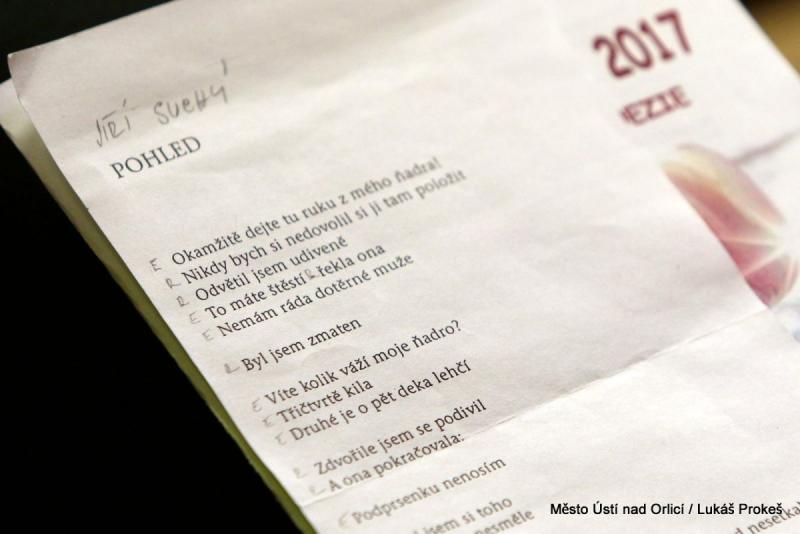 2017
EZIE
JIŘÍ SUCHÝ
POHLED
E Okamžitě dejte tu ruku z mého ňadra!
R Nikdy bych si nedovolil si ji tam položit
R Odvětil jsem udiveně
E To máte štěstí R řekla ona
E Nemám ráda dotěrné muže
R Byl jsem zmaten
E Víte kolik váží moje ňadro?
E Třičtvrtě kila
E Druhé je o pět deka lehčí
R Zdvořile jsem se podivil
R A ona pokračovala:
E Podprsenku nenosím
jsem si toho
nesměle
Město Ústí nad Orlicí / Lukáš Prokeš